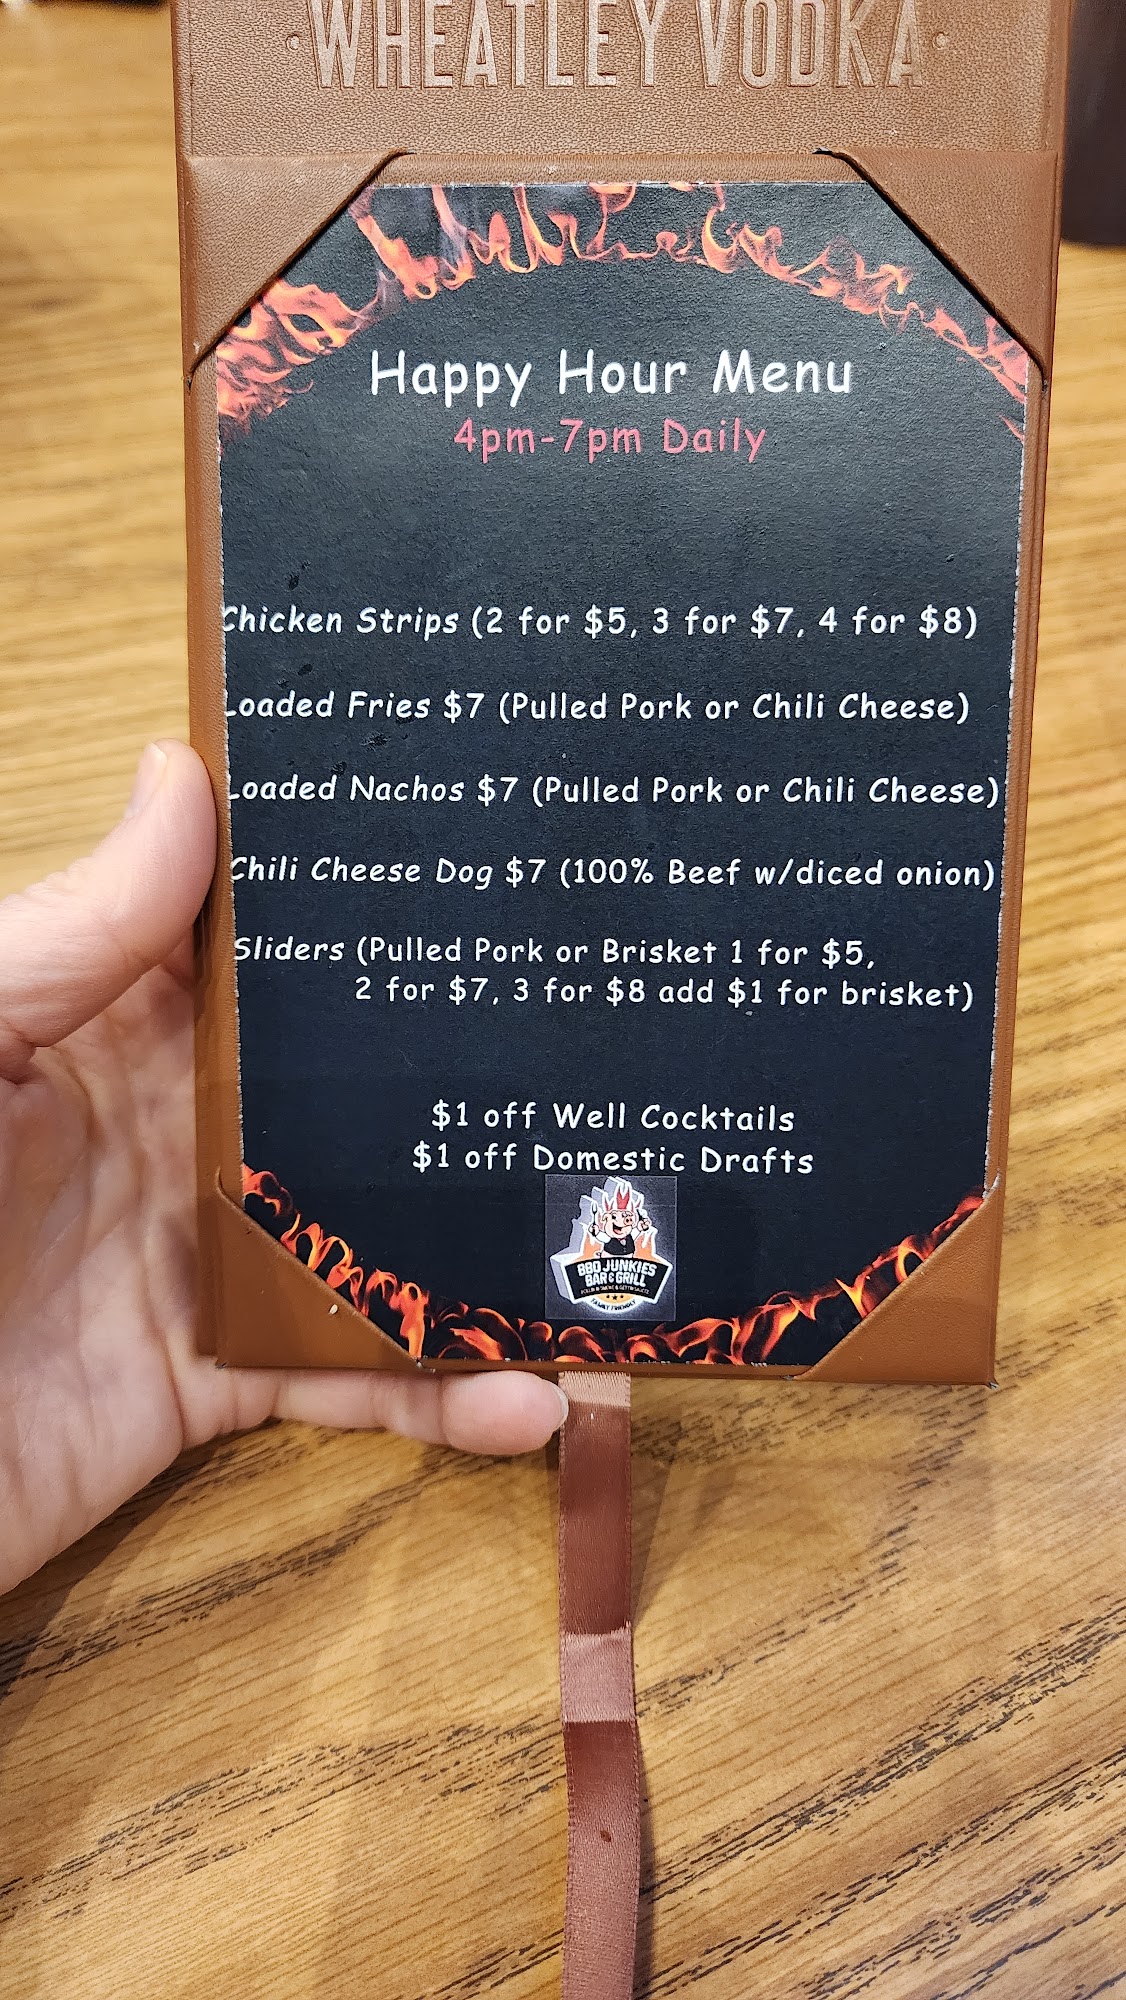 WHEATLEY VODKA
Happy Hour Menu
4pm-7pm Daily
Chicken Strips (2 for $5, 3 for $7, 4 for $8)
Loaded Fries $7 (Pulled Pork or Chili Cheese)
Loaded Nachos $7 (Pulled Pork or Chili Cheese)
Chili Cheese Dog $7 (100% Beef w/diced onion)
Sliders (Pulled Pork or Brisket 1 for $5,
2 for $7, 3 for $8 add $1 for brisket)
$1 off Well Cocktails
$1 off Domestic Drafts
BBQ JUNKIES
BAR & GRILL
FAMILY FRIENDLY